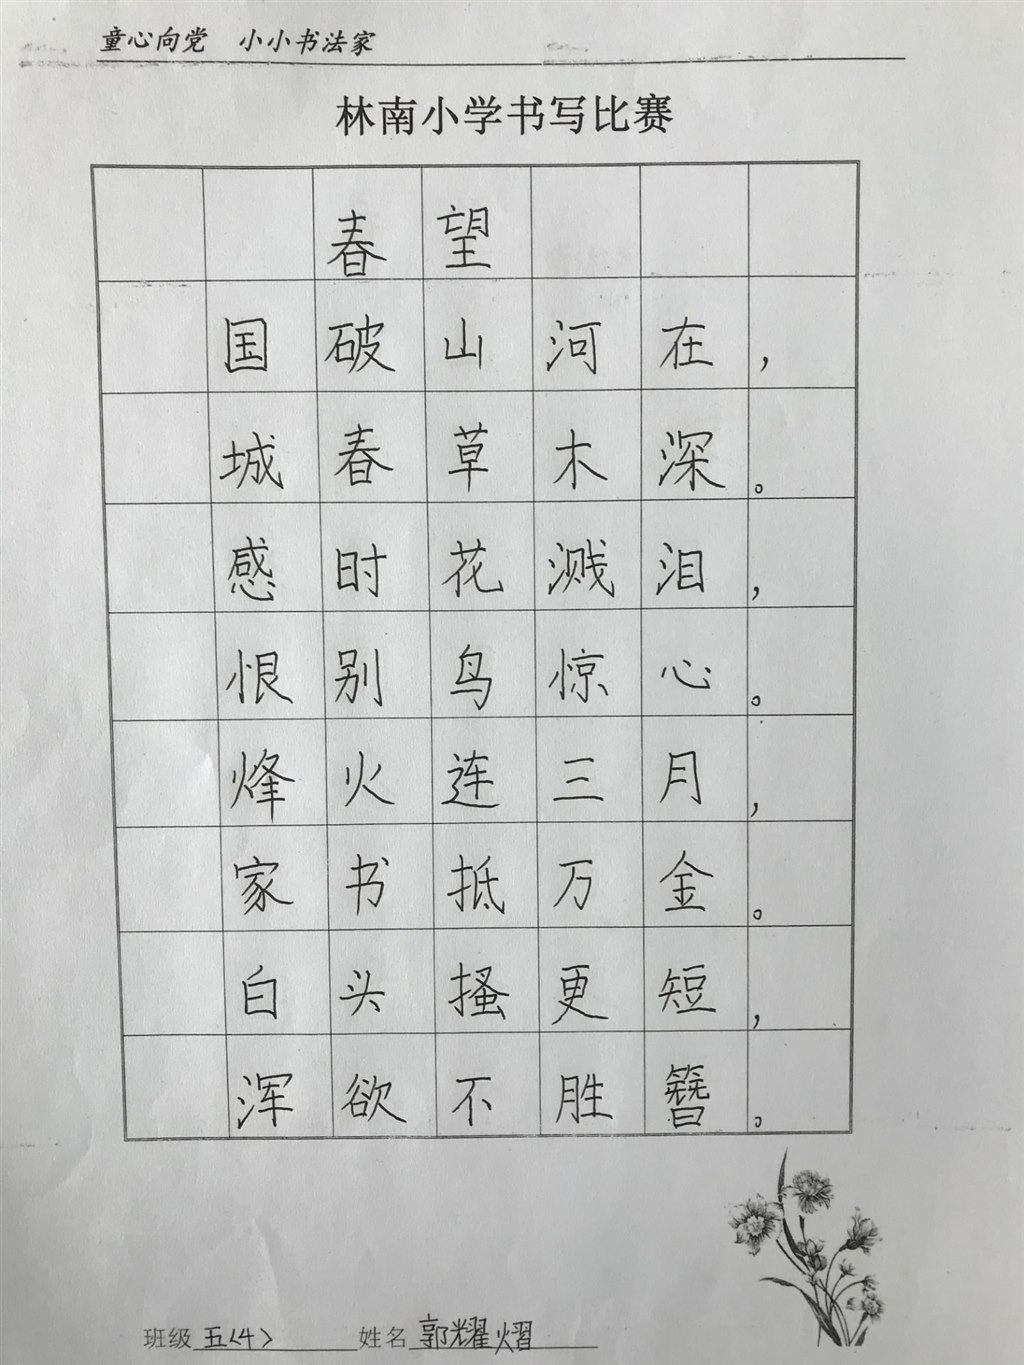 童心向党 小小书法家
林南小学书写比赛
春望
国破山河在，
城春草木深。
感时花溅泪，
恨别鸟惊心。
烽火连三月，
家书抵万金。
白头搔更短，
浑欲不胜簪。
班级 五<4> 姓名 郭耀熠